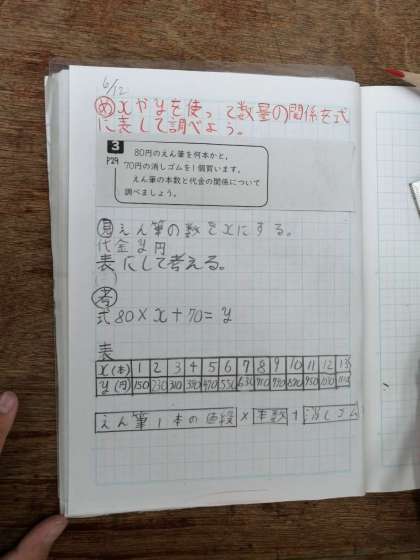 6/12
め xやyを使って数量の関係を式
に表して調べよう。
3
P29
80円のえん筆を何本かと、
70円の消しゴムを1個買います。
えん筆の本数と代金の関係について
調べましょう。
見 えん筆の数をxにする。
代金 y円
表にして考える。
考
式 80×x+70=y
表
x(本) 1 2 3 4 5 6 7 8 9 10 11 12 13
y(円) 150 230 310 390 470 550 630 710 790 870 950 1030 1110
えん筆1本の値段×本数+消しゴム